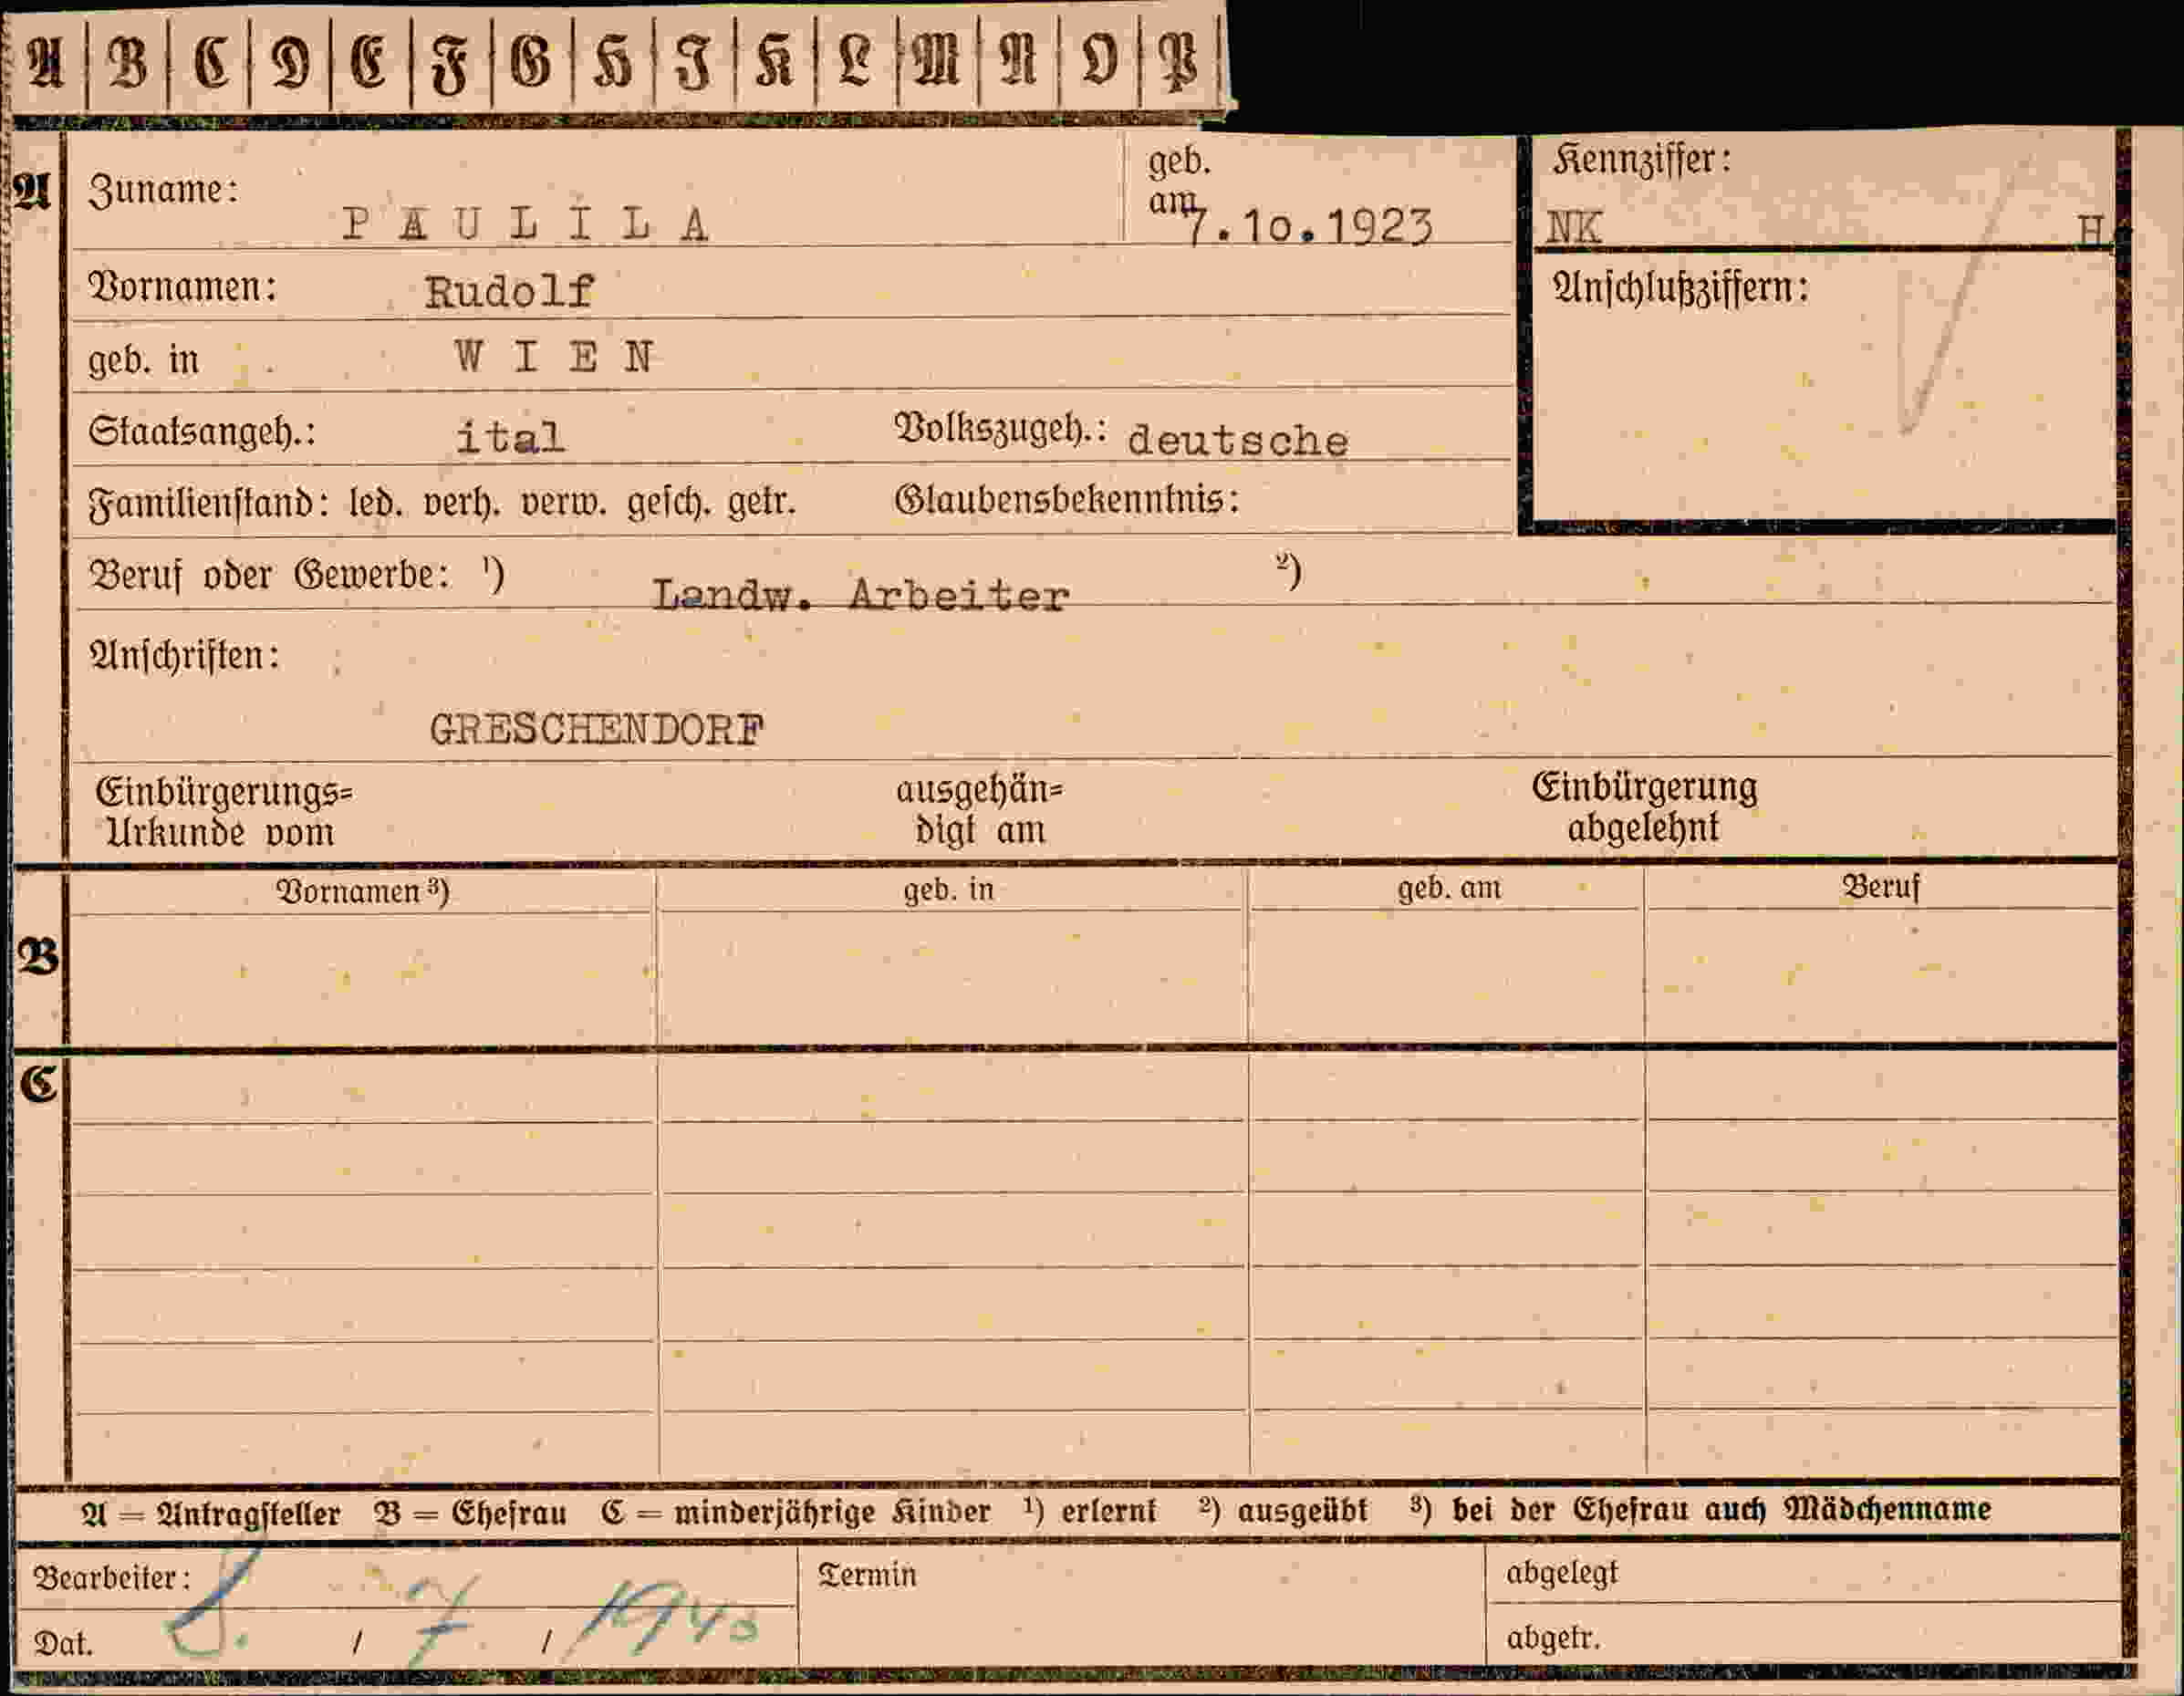 A B C D E F G H I K L M N O P
A
Zuname: PAULILA
geb. am 7.10.1923
Kennziffer:
NK H
Vornamen: Rudolf
Anschlußziffern:
geb. in WIEN
Staatsangeh.: ital Volkszugeh.: deutsche
Familienstand: led. verh. verw. gesch. getr. Glaubensbekenntnis:
Beruf oder Gewerbe: ¹) Landw. Arbeiter ²)
Anschriften:
GRESCHENDORF
Einbürgerungs= ausgehän= Einbürgerung
Urkunde vom digt am abgelehnt
Vornamen ³) geb. in geb. am Beruf
B
C
A = Antragsteller B = Ehefrau C = minderjährige Kinder ¹) erlernt ²) ausgeübt ³) bei der Ehefrau auch Mädchenname
Bearbeiter: Termin abgelegt
Dat. 8. / 7 / 1940 abgetr.